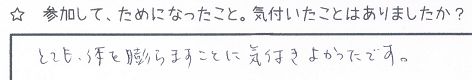 ☆ 参加して、ためになったこと。気付いたことはありましたか？
とても、体を膨らますことに気付きよかったです。